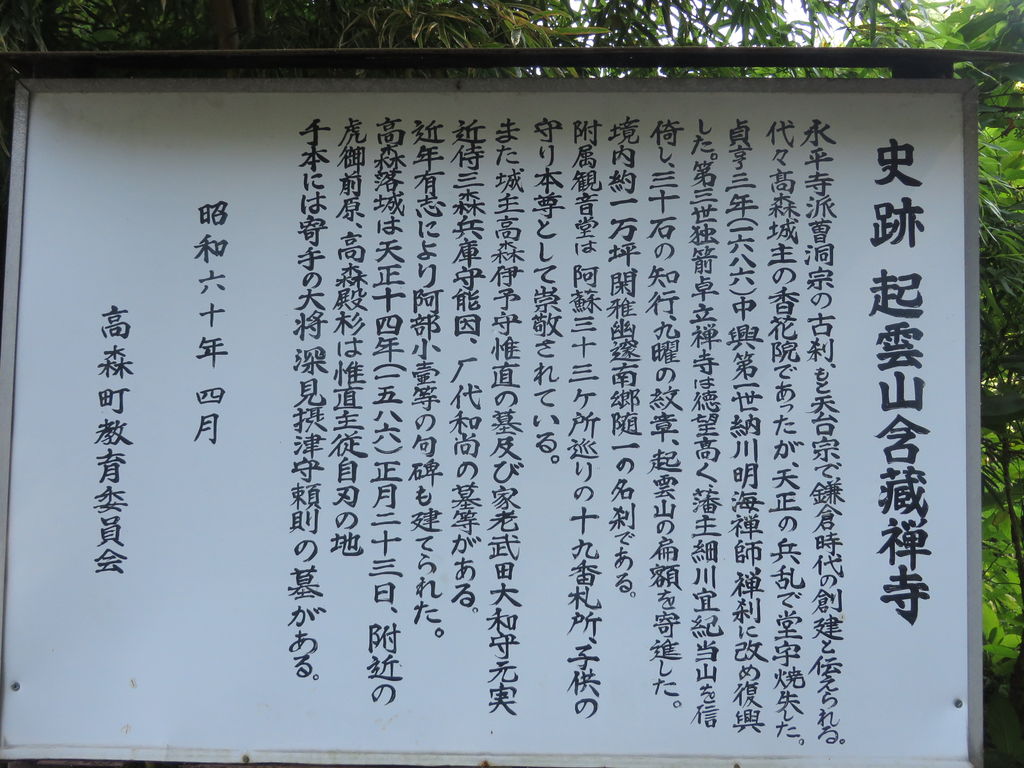 史跡 起雲山含蔵禅寺
永平寺派曹洞宗の古刹、もと天台宗で鎌倉時代の創建と伝えられる。
代々高森城主の香花院であったが、天正の兵乱で堂宇焼失した。
貞享三年(一六八六)中興第一世納川明海禅師禅刹に改め復興
した。第三世独箭卓立禅寺は徳望高く藩主細川宜紀当山を信
倚し、三十石の知行、九曜の紋章、起雲山の扁額を寄進した。
境内約一万坪閑雅幽邃南郷随一の名刹である。
附属観音堂は阿蘇三十三ケ所巡りの十九番札所、子供の
守り本尊として崇敬されている。
また城主高森伊予守惟直の墓及び家老武田大和守元実
近侍三森兵庫守能因、厂代和尚の墓等がある。
近年有志により阿部小壷等の句碑も建てられた。
高森落城は天正十四年(一五八六)正月二十三日、附近の
虎御前原、高森殿杉は惟直主従自刃の地
千本には寄手の大将深見摂津守頼則の墓がある。
昭和六十年四月
高森町教育委員会